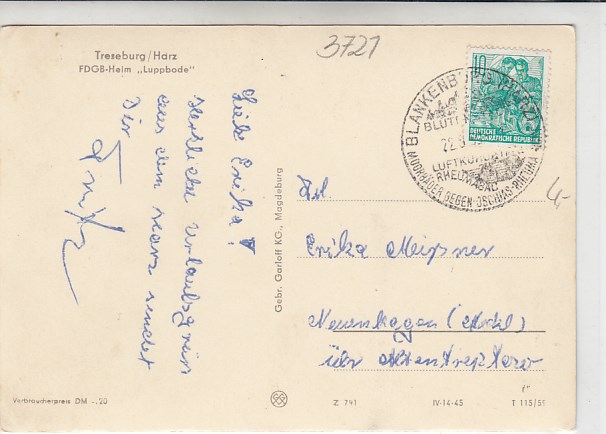 Treseburg/Harz
FDGB-Heim „Luppbode"
3721
10
DEUTSCHE
DEMOKRATISCHE REPUBLIK
BLANKENBURG (HARZ)
22.
LUFTKURORT
RHEUMABAD
MOORBÄDER GEGEN ISCHIAS-RHEUMA
4,-
Liebe Erika!
Herzliche Urlaubsgrüße
aus dem Harz sendet
Dir
Frl.
Erika Meißner
Neuenhagen
über Altentreptow
2
Gebr. Garloff KG., Magdeburg
Verbraucherpreis DM -.20
Z 791
IV-14-45
T 115/56